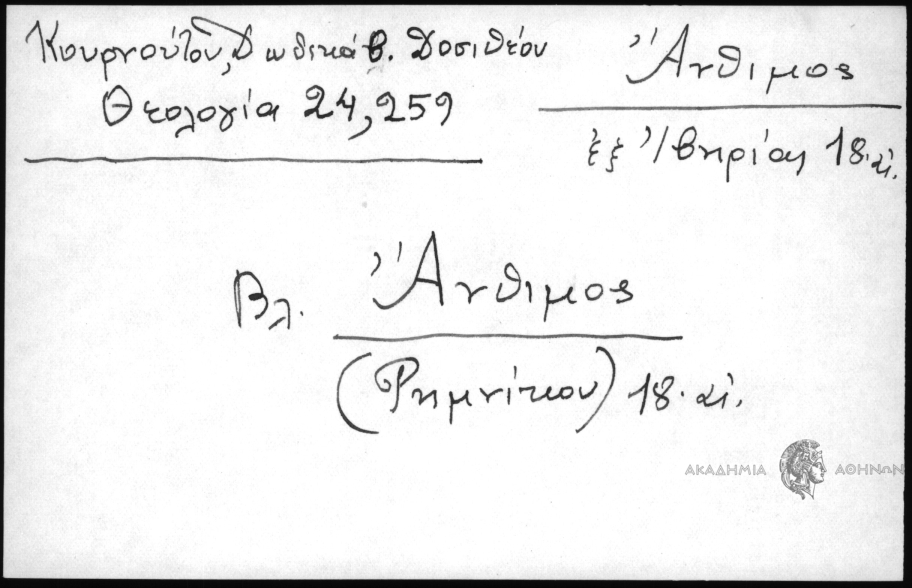 Κουρνούτου, Δωδεκάβ. Δοσιθέου
Θεολογία 24, 259
Ἄνθιμος
ἐξ Ἰβηρίας 18. αἰ.
Βλ. Ἄνθιμος
(Ρημνίκου) 18. αἰ.
ΑΚΑΔΗΜΙΑ ΑΘΗΝΩΝ